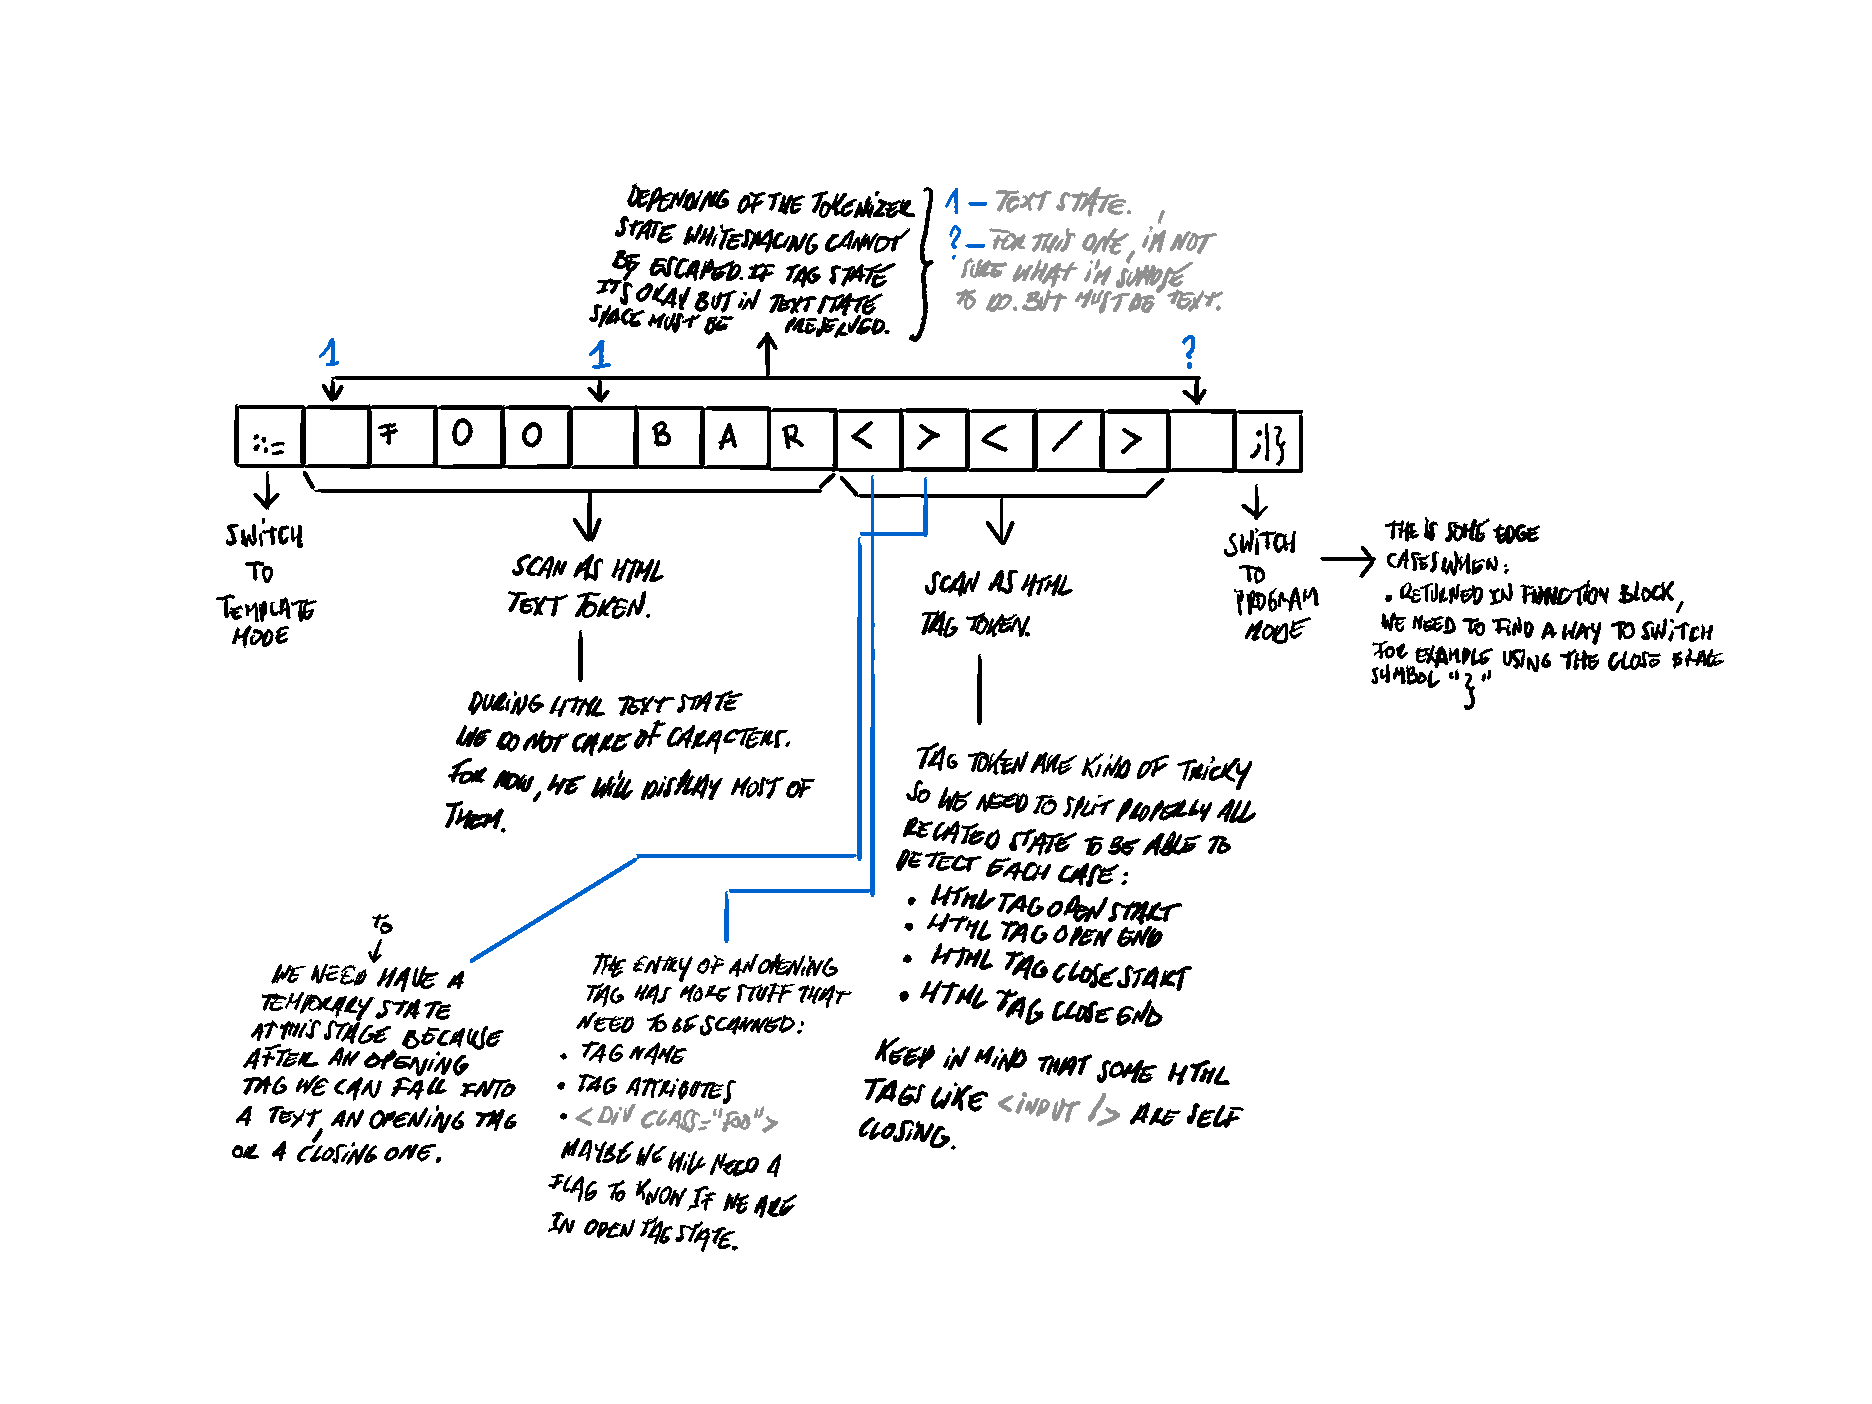 DEPENDING OF THE TOKENIZER
STATE WHITESPACING CANNOT
BE ESCAPED. IF TAG STATE
IT'S OKAY BUT IN TEXT STATE
SPACE MUST BE PRESERVED.
1 – TEXT STATE.
? – FOR THIS ONE, I'M NOT
SURE WHAT I'M SUPPOSE
TO DO. BUT MUST BE TEXT.
1 1 ?
::= F O O B A R < > < / > ;|}
SWITCH
TO
TEMPLATE
MODE
SCAN AS HTML
TEXT TOKEN.
DURING HTML TEXT STATE
WE DO NOT CARE OF CARACTERS.
FOR NOW, WE WILL DISPLAY MOST OF
THEM.
SCAN AS HTML
TAG TOKEN.
TAG TOKEN ARE KIND OF TRICKY
SO WE NEED TO SPLIT PROPERLY ALL
RELATED STATE TO BE ABLE TO
DETECT EACH CASE:
• HTML TAG OPEN START
• HTML TAG OPEN END
• HTML TAG CLOSE START
• HTML TAG CLOSE END
KEEP IN MIND THAT SOME HTML
TAGS LIKE <INPUT /> ARE SELF
CLOSING.
SWITCH
TO
PROGRAM
MODE
THE IS SOME EDGE
CASES WHEN:
• RETURNED IN FUNCTION BLOCK,
WE NEED TO FIND A WAY TO SWITCH
FOR EXAMPLE USING THE CLOSE BRACE
SYMBOL "}"
TO
WE NEED HAVE A
TEMPORARY STATE
AT THIS STAGE BECAUSE
AFTER AN OPENING
TAG WE CAN FALL INTO
A TEXT, AN OPENING TAG
OR A CLOSING ONE.
THE ENTRY OF AN OPENING
TAG HAS MORE STUFF THAT
NEED TO BE SCANNED:
• TAG NAME
• TAG ATTRIBUTES
• <DIV CLASS="FOO">
MAYBE WE WILL NEED A
FLAG TO KNOW IF WE ARE
IN OPEN TAG STATE.